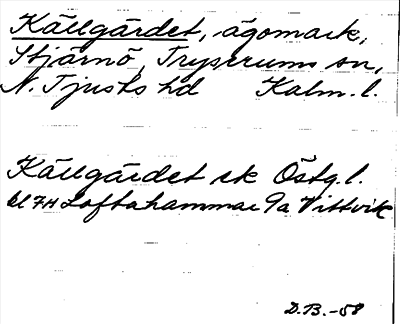 Källgärdet, ägomark,
Stjärnö, Tryserums sn,
N. Tjusts hd Kalm. l.
Källgärdet ek Östg. l.
bl 7H Loftahammar 9a Vittvik
D.B.-58